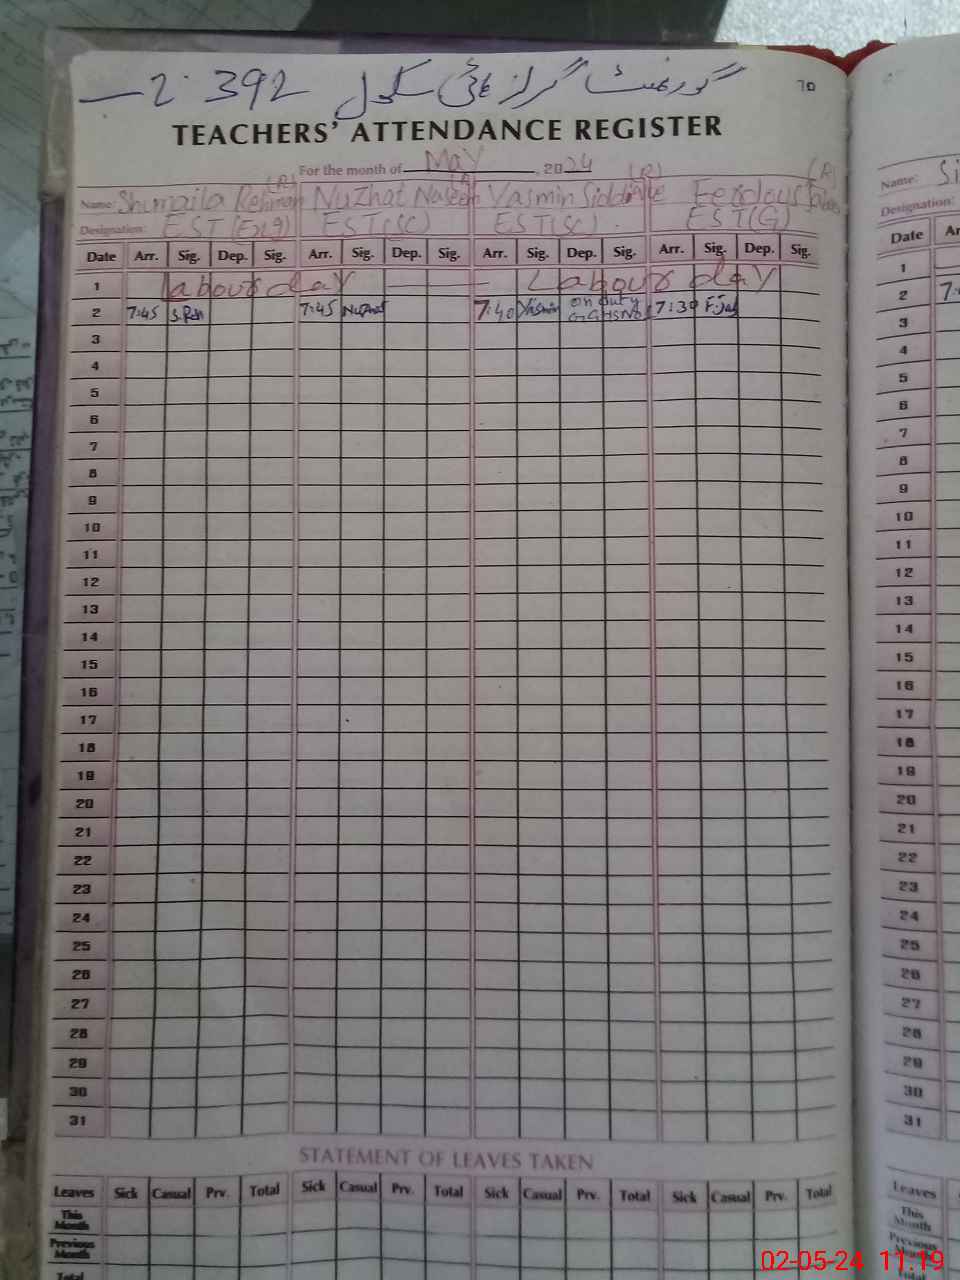 گورنمنٹ گرلز ہائی سکول 392
70
TEACHERS' ATTENDANCE REGISTER
For the month of May, 2024
(R) (R) (R) (R)
Name: Shumaila Rehman Nuzhat Naseem Yasmin Siddique
Designation: EST (Eng) EST(SC) EST(SC) EST(G)
Date Arr. Sig. Dep. Sig. Arr. Sig. Dep. Sig. Arr. Sig. Dep. Sig. Arr. Sig. Dep. Sig.
1 Labour day Labour day
2 7:45 7:45 Nuzhat 7:40 Yasmin on duty 7:30
3
4
5
6
7
8
9
10
11
12
13
14
15
16
17
18
19
20
21
22
23
24
25
26
27
28
29
30
31
STATEMENT OF LEAVES TAKEN
Leaves Sick Casual Prv. Total Sick Casual Prv. Total Sick Casual Prv. Total Sick Casual Prv. Total
This Month
Previous Month
Total
Name:
Designation:
Date
1
2
3
4
5
6
7
8
9
10
11
12
13
14
15
16
17
18
19
20
21
22
23
24
25
26
27
28
29
30
31
Leaves
This Month
Previous Month
Total
02-05-24 11:19